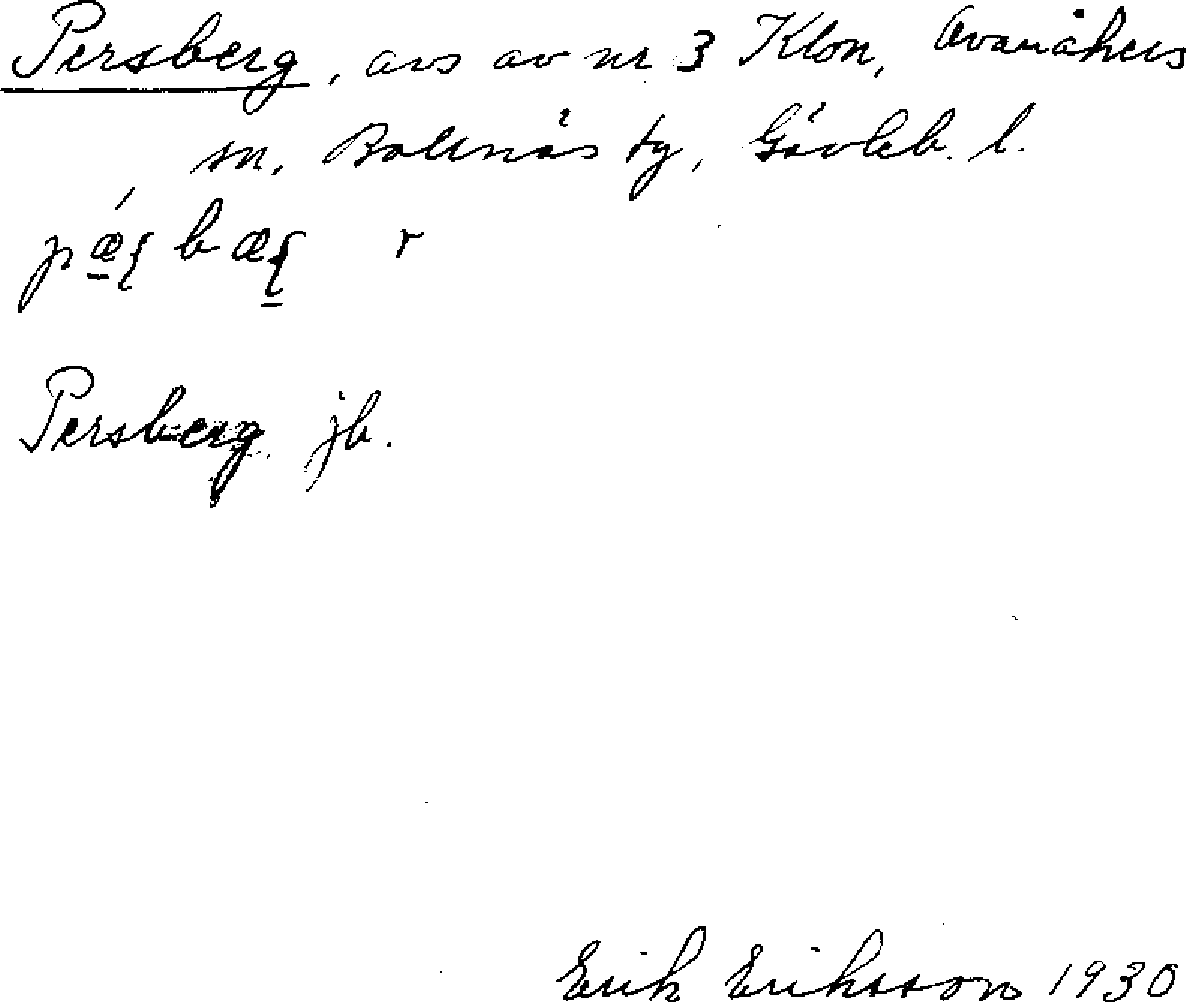 Persberg, avs av nr 3 Klon, Ovanåkers
sn, Bollnäs tg, Gävleb. l.
r
Persberg jb.
Erik Eriksson 1930